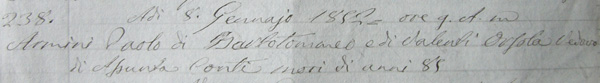 238. Adi 8. Gennajo 1852 ore 9. A. m
Armini Paolo di Bartolomeo e di Valenti Orsola Vedovo
di Assunta Conti morì di anni 85